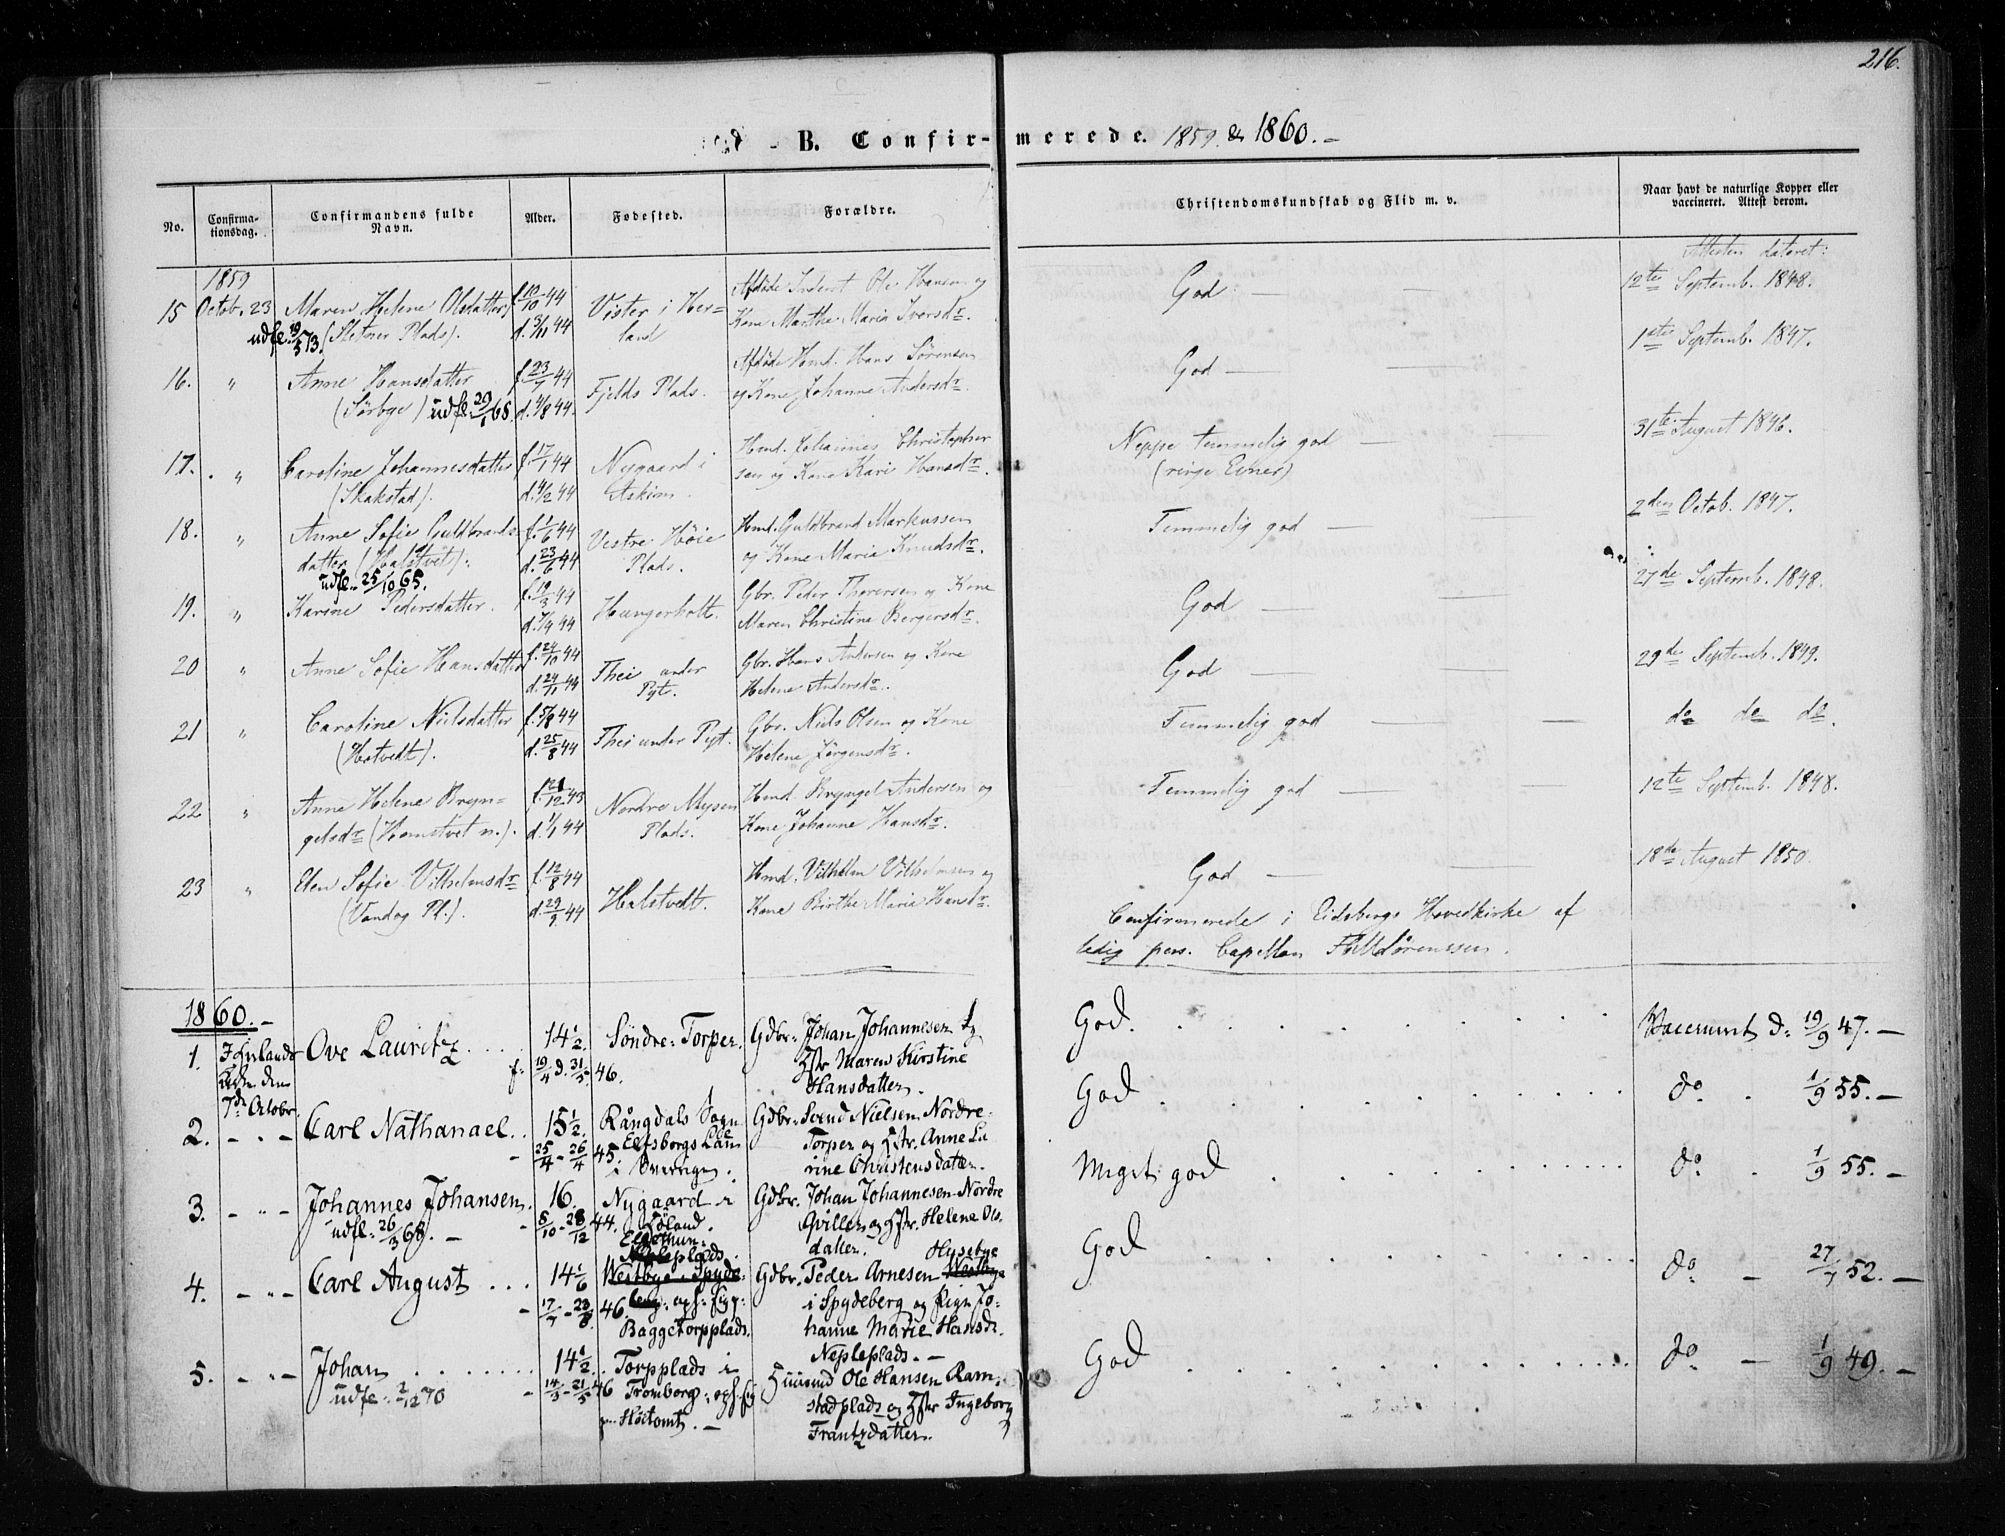 216.
B. Confirmerede. 1859 & 1860.
No.
Confirmationsdag.
Confirmandens fulde Navn.
Alder.
Fødested.
Forældre.
Christendomskundskab og Flid m. v.
Naar havt de naturlige Kopper eller vaccineret. Attest derom.
1859
Attesten dateret:
15 Octob. 23 Maren Helene Olsdatter f. 10/10 44 Vister i Her= Afdøde Inderst Ole Hansen og God 12te Septemb. 1848.
udfl. 19/5 73. (Sletner Plads). d. 3/11 44 land Kone Marthe Maria Iversdr.
16. " Anne Hansdatter f. 23/7 44 Fjelds Plads. Afdøde Hmd. Hans Sørensen God 1ste Septemb. 1847.
(Sørbye) udfl. 29/1 68. d. 4/8 44. og Kone Johanne Andersdr.
17. " Caroline Johannesdatter f. 17/1 44 Nygaard i Hmd. Johannes Christopher Neppe temmelig god 31te August 1846.
(Skakstad). d. 4/2 44 Askim. sen og Kone Kari Hansdr. (ringe Evner)
18. " Anne Sofie Guldbrands f. 1/6 44 Vestre Høie Hmd. Guldbrand Markussen Temmelig god 2den Octob. 1847.
datter (Halstvet). d. 23/6 44 Plads. og Kone Maria Knudsdr.
udfl. 25/10 65.
19. " Karine Pedersdatter. f. 19/3 44 Hungerholt. Gbr. Peder Thorersen og Kone God 27de Septemb. 1848.
d. 7/4 44 Maren Christine Bergersdr.
20 " Anne Sofie Hansdatter f. 24/10 44 Thei under Gbr. Hans Andersen og Kone God 29de Septemb. 1849.
d. 24/11 44 Pyt. Helene Andersdr.
21 " Caroline Nielsdatter f. 5/8 44 Thei under Pyt. Gbr. Niels Olsen og Kone Temmelig god do do do.
(Hotvedt). d. 25/8 44 Helene Jørgensdr.
22 " Anne Helene Bryn= f. 21/12 43 Nordre Mysen Hmd. Bryngel Andersen og Temmelig god 12te Septemb. 1848.
gelsdr (Homstvet n.). d. 1/1 44 Plads. Kone Johanne Hansdr.
23 " Elen Sofie Vilhelmsdr f. 12/8 44 Halstvedt. Hmd. Vilhelm Vilhelmsen og God 18de August 1850.
(Vandog Pl.). d. 29/9 44 Kone Birthe Maria Hansdr.
Confirmerede i Eidsbergs Hovedkirke af
ledig pers. Capellan
1860.
1. I Hærlands Ove Lauritz 14 1/2. Søndre Torper. Gdbr. Johan Johannesen og God. Vaccineret d. 19/9 47.
Kirke den f. 19/4 d. 31/5 46. Hstr Maren Kirstine
7de Octobr. Hansdatter.
2. - " - Carl Nathanael. 15 1/2. Rångdals Sogn Gdbr. Svend Nielsen Nordre- God do 1/9 55.
25/4 - 26/4 45. Elfsborgs Län Torper og Hstr. Anne La
i Sverrige. rine Christensdatter.
3. - " - Johannes Johansen. 16. Nygaard i Gdbr. Johan Johannesen Nordre Meget god do 1/9 55.
udfl. 26/3 68. 8/10 - 28/12 44. Qviller og Hstr. Helene Ols-
datter.
4. - " - Carl August 14 1/6 Westbye Spyde= Gdbr. Peder Arnesen Westbye Husebye God do 27/7 52.
17/7 - 23/8 46. i Spydeberg og Pigen Jo=
Baggetorpplads. hanne Marie Hansdr.
Nepleplads.
5. - " - Johan 14 1/2. Torpplads i Huusmd Ole Hansen Ram= God do 1/9 49.
udfl. 2/12 70 14/3 - 21/5 46 Tromborg: oph. sig stadplads og Hstr Ingeborg
Høitomt. Frantzdatter.